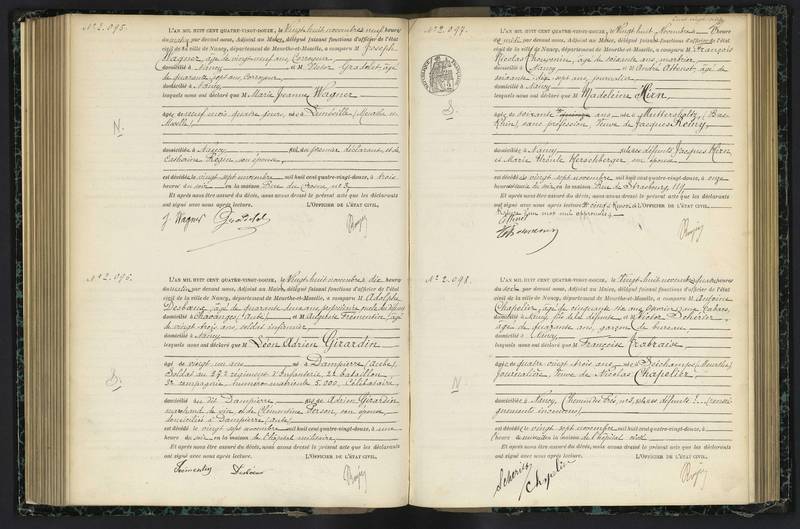 N° 2.095.
L'AN MIL HUIT CENT QUATRE-VINGT-DOUZE, le Vingt huit novembre neuf heures
du matin par devant nous, Adjoint au Maire, délégué faisant fonctions d'officier de l'état
civil de la ville de Nancy, département de Meurthe-et-Moselle, a comparu M Joseph
Wagner, âgé de vingt neuf ans, Corroyeur,
domicilié à Nancy et M Victor âgé
de quarante sept ans, Corroyeur,
domicilié à Nancy
lesquels nous ont déclaré que M Marie Jeanne Wagner
N.
âgée de neuf mois quatre jours, née à Lunéville (Meurthe et
Moselle),
domiciliée à Nancy fille du premier déclarant, et de
Catherine Régin son épouse,
est décédée le vingt sept novembre mil huit cent quatre-vingt-douze, à trois
heures du soir en la maison Rue du n° 3
Et après nous être assuré du décès, nous avons dressé le présent acte que les déclarants
ont signé avec nous après lecture. L'OFFICIER DE L'ÉTAT CIVIL,
J Wagner
N° 2.096.
L'AN MIL HUIT CENT QUATRE-VINGT-DOUZE, le Vingt huit novembre dix heures
du matin par devant nous, Adjoint au Maire, délégué faisant fonctions d'officier de l'état
civil de la ville de Nancy, département de Meurthe-et-Moselle, a comparu M Adolphe
âgé de quarante
domicilié à (Aube) et M Adolphe âgé
de vingt trois ans, soldat infirmier
domicilié à Nancy
lesquels nous ont déclaré que M Léon Adrien Girardin
D.
âgé de vingt un ans né à Dampierre (Aube)
Soldat au 37e régiment d'Infanterie, 2e bataillon,
3e compagnie, numéro matricule 5.000, Célibataire,
domicilié au dit Dampierre fils de Adrien Girardin
marchand de vin, et de Clémentine Person, son épouse,
domiciliés à Dampierre (Aube)
est décédé le vingt sept novembre mil huit cent quatre-vingt-douze, à une
heure du soir en la maison de l'hôpital militaire
Et après nous être assuré du décès, nous avons dressé le présent acte que les déclarants
ont signé avec nous après lecture. L'OFFICIER DE L'ÉTAT CIVIL,
N° 2.097.
L'AN MIL HUIT CENT QUATRE-VINGT-DOUZE, le Vingt huit Novembre heure
de midi par devant nous, Adjoint au Maire, délégué faisant fonctions d'officier de l'état
civil de la ville de Nancy, département de Meurthe-et-Moselle, a comparu M François
Nicolas Thouvenin, âgé de soixante ans,
domicilié à Nancy et M André Athenot, âgé de
soixante dix sept ans, journalier
domicilié à Nancy
lesquels nous ont déclaré que M Madeleine Kien
S.
âgée de soixante ans née à Muttersholtz (Bas
Rhin), sans profession, Veuve de Jacques Remy,
domiciliée à Nancy fille des défunts Jacques Kien
et Marie Ursule Herschberger son épouse
est décédée le vingt sept novembre mil huit cent quatre-vingt-douze, à onze
heures du soir en la maison Rue de Strasbourg 119
Et après nous être assuré du décès, nous avons dressé le présent acte que les déclarants
ont signé avec nous après lecture L'OFFICIER DE L'ÉTAT CIVIL,
Thouvenin
N° 2.098.
L'AN MIL HUIT CENT QUATRE-VINGT-DOUZE, le Vingt huit novembre heures
du soir par devant nous, Adjoint au Maire, délégué faisant fonctions d'officier de l'état
civil de la ville de Nancy, département de Meurthe-et-Moselle, a comparu M Antoine
Chapelier, âgé de cinquante
domicilié à Nancy fils de la défunte et M Victor
âgé de quarante ans, garçon de bureau
domicilié à Nancy
lesquels nous ont déclaré que M Françoise Rabraise
N
âgée de quatre vingt trois ans née à Seichamps (Meurthe)
journalière, Veuve de Nicolas Chapelier,
domiciliée à Nancy, fille des défunts
est décédée le vingt sept novembre mil huit cent quatre-vingt-douze, à
heure en la maison de l'hôpital civil
Et après nous être assuré du décès, nous avons dressé le présent acte que les déclarants
ont signé avec nous après lecture. L'OFFICIER DE L'ÉTAT CIVIL,
Chapelier